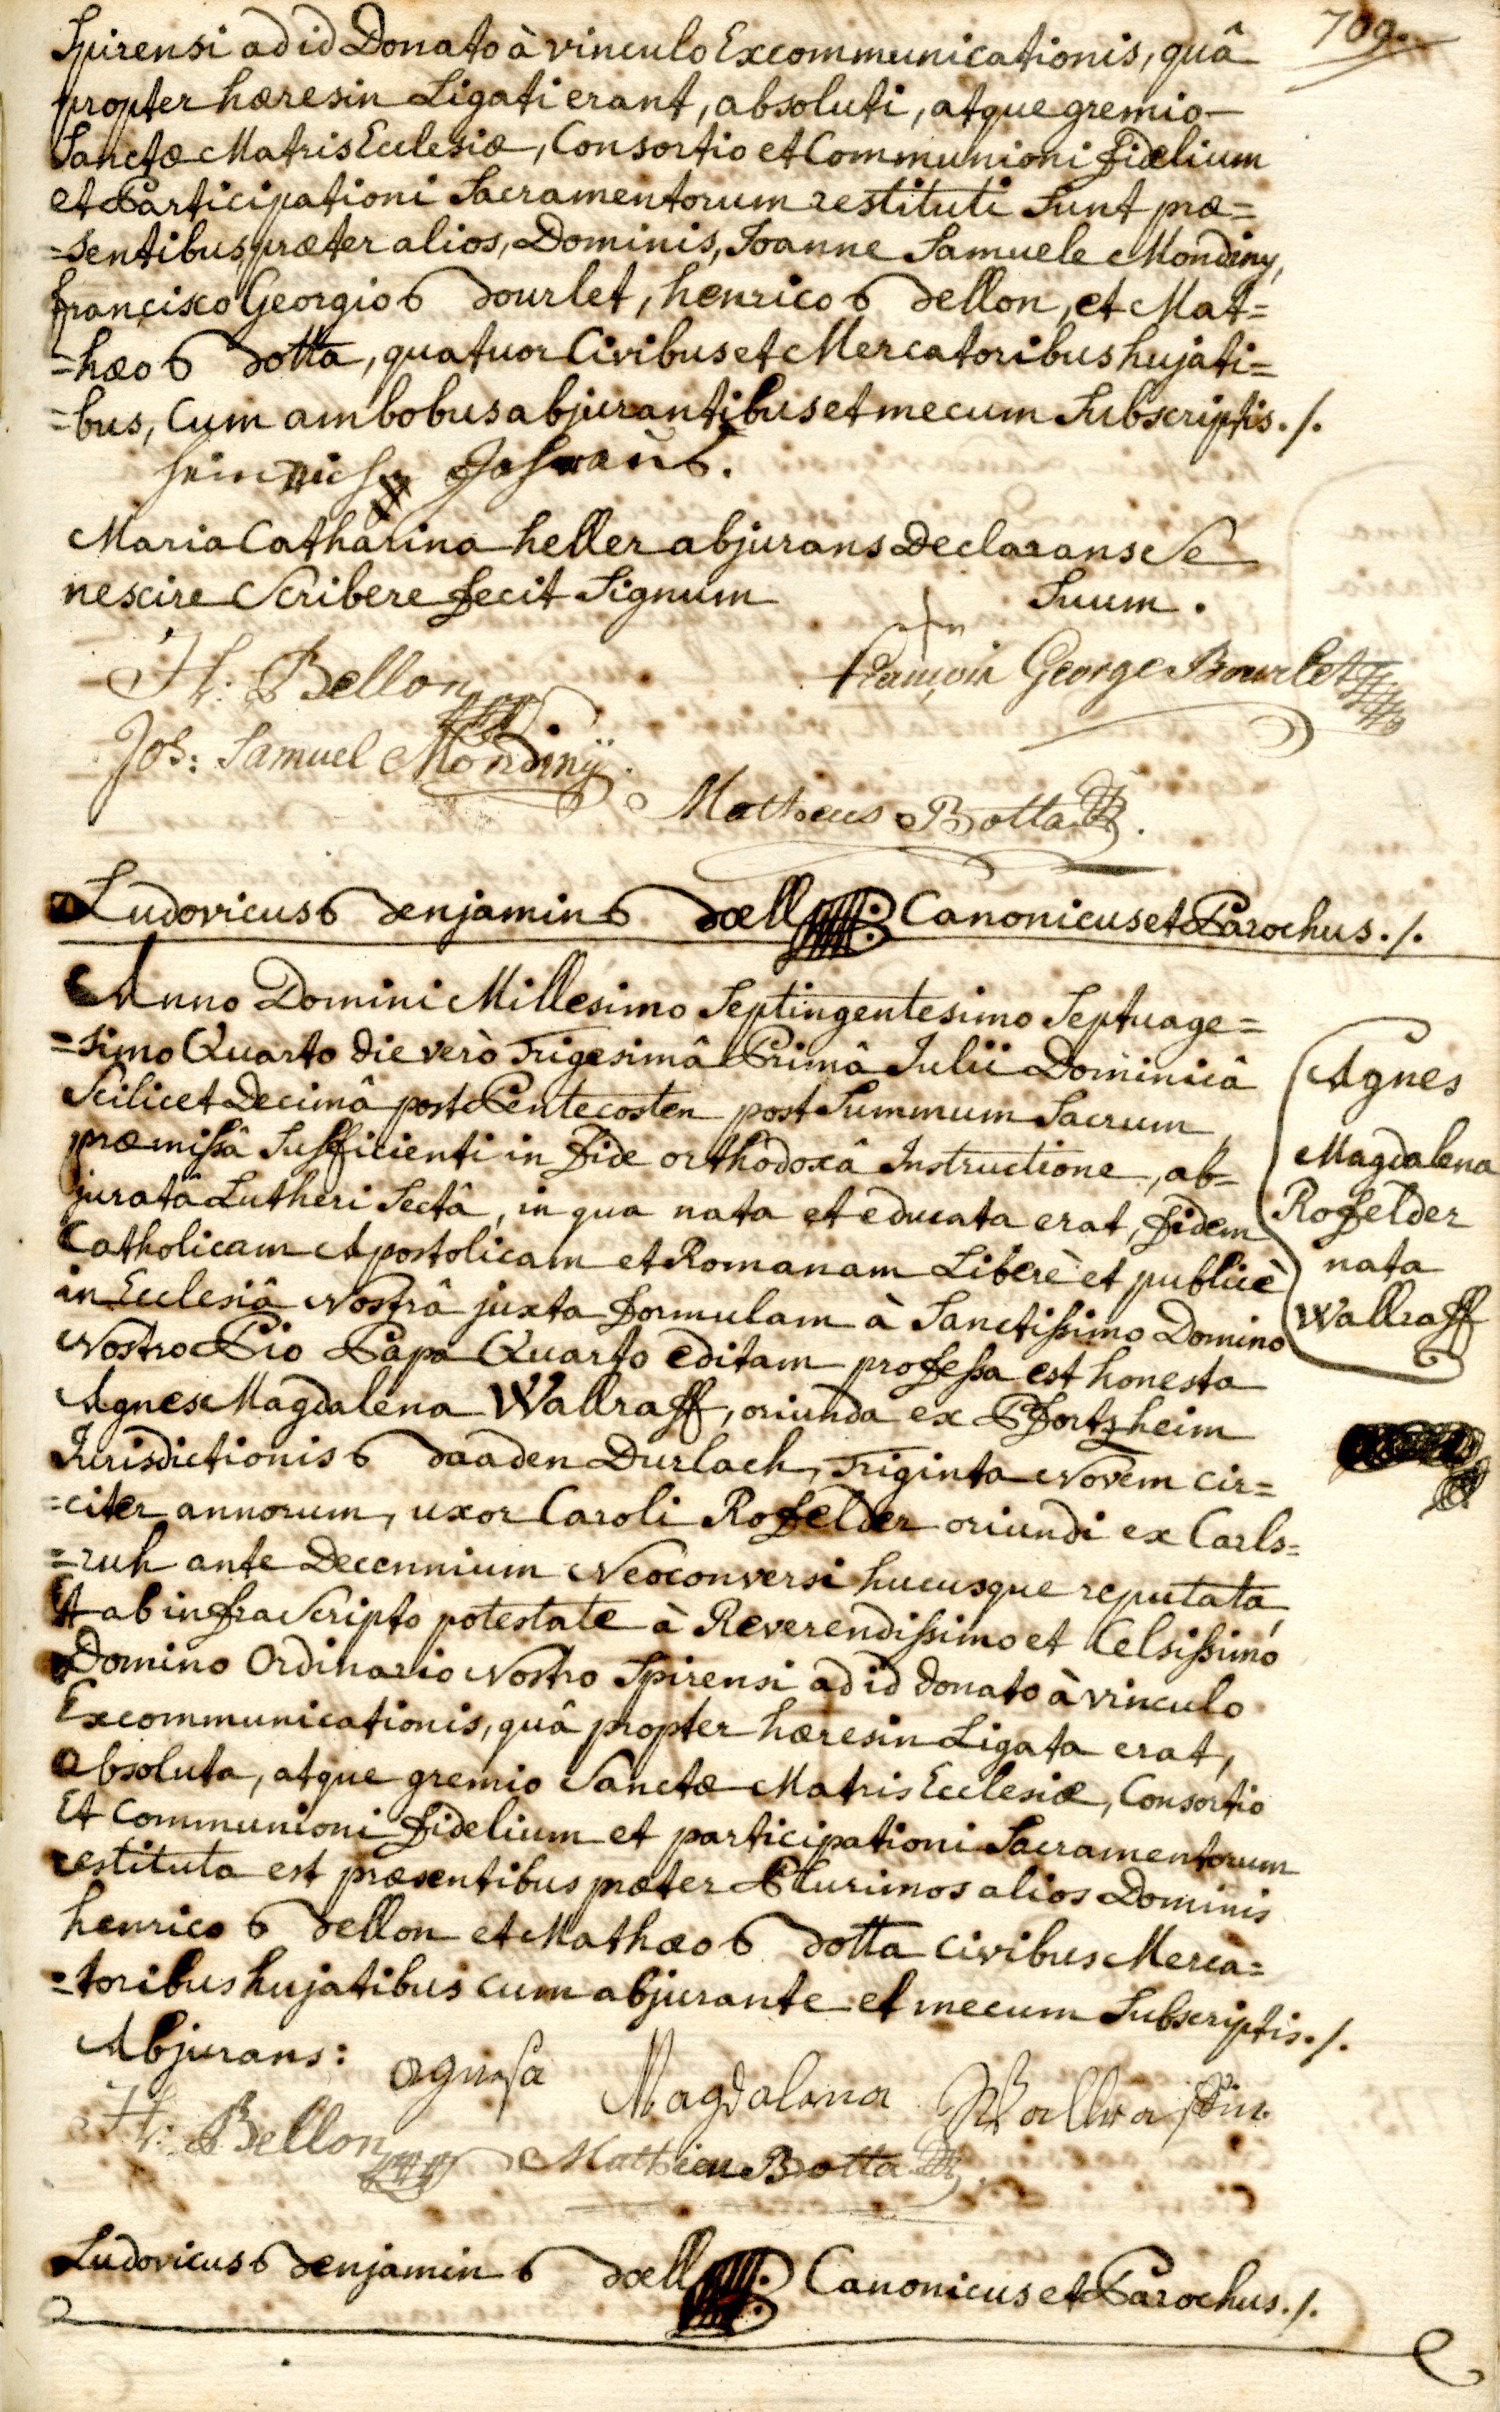 709.
Spirensi ad id Donato à vinculo Excommunicationis, quâ
propter hæresin Ligati erant, absoluti, atque gremio
Sanctæ Matris Ecclesiæ, Consortio et Communioni fidelium
et Participationi Sacramentorum restituti Sunt præ=
=sentibus, præter alios, Dominis, Joanne Samuele Mondiny,
francisco Georgio Bourlet, henrico Bellon, et Mat=
=hæo Botta, quatuor Civibus et Mercatoribus hujati=
=bus, Cum ambobus abjurantibus et mecum Subscriptis ./.
Maria Catharina heller abjurans Declarans Se
nescire Scribere fecit Signum Suum .
H: Bellon
François George Bourlet
Jos: Samuel Mondinÿ
Matheus Botta
Ludovicus Benjamin Bœll Canonicus et Parochus ./.
Anno Domini Millesimo Septingentesimo Septuage=
=simo Quarto die verò Trigesimâ Primâ Julii Dominicâ
Scilicet Decimâ post Pentecosten post Summum Sacrum
præmissâ Sufficienti in fide orthodoxâ Instructione, ab=
juratâ Lutheri Sectâ, in qua nata et educata erat, fidem
Catholicam Apostolicam et Romanam Liberè et publicè
in Ecclesiâ Nostrâ juxta formulam à Sanctissimo Domino
Nostro Pio Papa Quarto editam professa est honesta
Agnes Magdalena Wallraff, oriunda ex Pfortzheim
Jurisdictionis Baaden Durlach, Triginta Novem cir=
=citer annorum, uxor Caroli Rofelder oriundi ex Carls=
=ruh ante Decennium Neoconversi hucusque reputata,
et ab infra Scripto potestate à Reverendissimo et Celsissimo
Domino Ordinario Nostro Spirensi ad id donato à vinculo
Excommunicationis, quâ propter hæresin Ligata erat,
absoluta, atque gremio Sanctæ Matris Ecclesiæ, Consortio
et Communioni fidelium et participationi Sacramentorum
restituta est præsentibus præter Plurimos alios Dominis
henrico Bellon et Mathæo Botta civibus Merca=
=toribus hujatibus cum abjurante et mecum Subscriptis ./.
Agnes
Magdalena
Rofelder
nata
Wallraff
Abjurans: agnesa Magdalena Wallrafin
H: Bellon
Mathieu Botta
Ludovicus Benjamin Bœll Canonicus et Parochus ./.